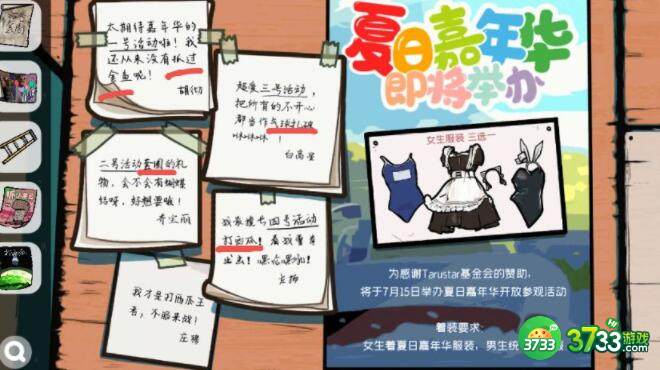 太期待嘉年华的
一号活动啦！我
还从来没有抓过
金鱼呢！
胡彻
超爱三号活动，
把所有的不开心
都当作气球扎破
咻咻咻！
白高星
二号活动套圈的礼
物，会不会有蝴蝶
结呀，好想要哦！
乔宝丽
我最擅长四号活动
打西瓜！看我曹哥
出击！嘿哈嘿哈！
我才是打西瓜王
者，不服来战！
庄臻
夏日嘉年华
即将举办
女生服装 三选一
为感谢Tarustar基金会的赞助，
将于7月15日举办夏日嘉年华开放参观活动
着装要求
女生着夏日嘉年华服装，男生统
3733
3733游戏